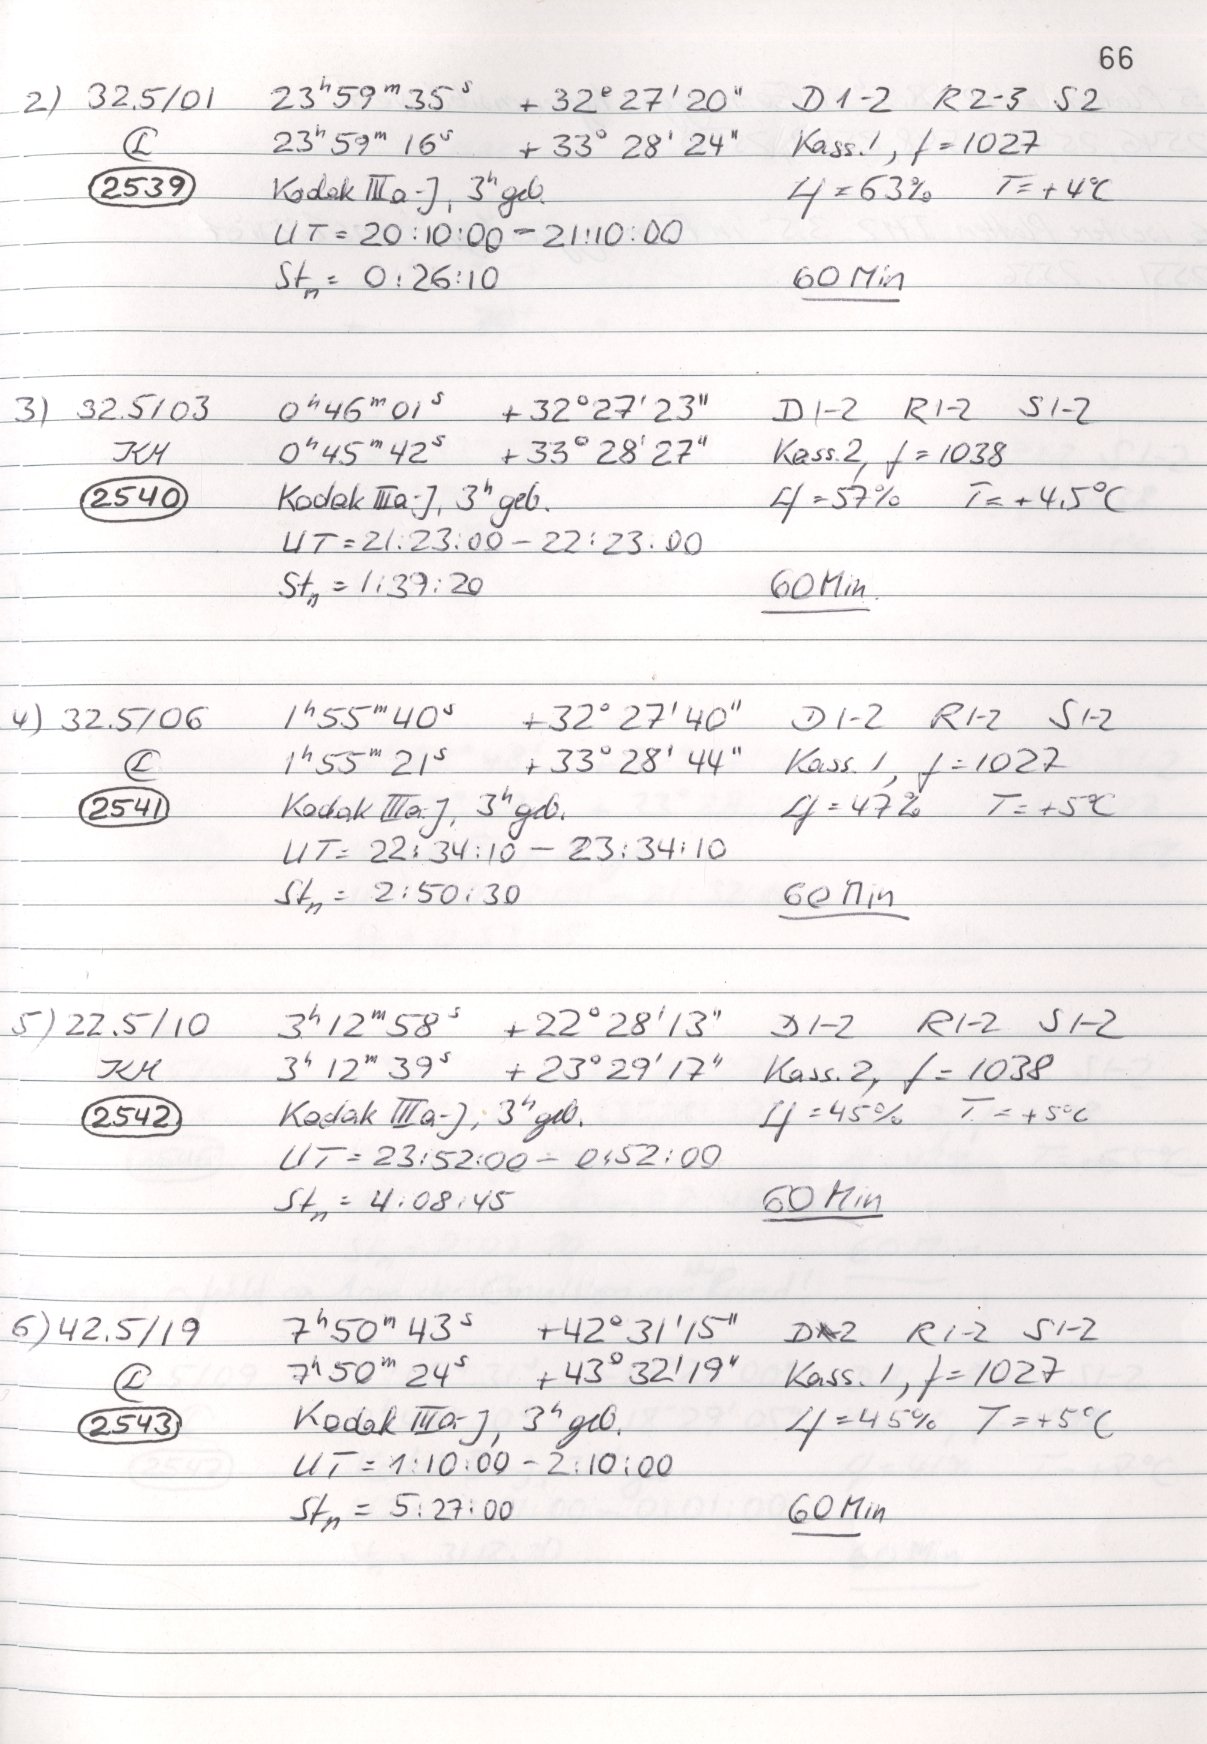 66
2) 32.5/01 23ʰ59ᵐ35ˢ +32°27'20" D1-2 R2-3 S2
Ⓛ 23ʰ59ᵐ16ˢ +33°28'24" Kass.1, f=1027
2539 Kodak IIIa-J, 3ʰ geb. Lf=63% T=+4°C
UT=20:10:00-21:10:00
Stₙ= 0:26:10 60 Min
3) 32.5/03 0ʰ46ᵐ01ˢ +32°27'23" D1-2 R1-2 S1-2
KM 0ʰ45ᵐ42ˢ +33°28'27" Kass.2, f=1038
2540 Kodak IIIa-J, 3ʰ geb. Lf=57% T=+4,5°C
UT=21:23:00-22:23:00
Stₙ=1:39:20 60 Min.
4) 32.5/06 1ʰ55ᵐ40ˢ +32°27'40" D1-2 R1-2 S1-2
Ⓛ 1ʰ55ᵐ21ˢ +33°28'44" Kass.1, f=1027
2541 Kodak IIIa-J, 3ʰ geb. Lf=47% T=+5°C
UT=22:34:10-23:34:10
Stₙ= 2:50:30 60 Min
5) 22.5/10 3ʰ12ᵐ58ˢ +22°28'13" D1-2 R1-2 S1-2
KM 3ʰ12ᵐ39ˢ +23°29'17" Kass.2, f=1038
2542 Kodak IIIa-J, 3ʰ geb. Lf=45% T=+5°C
UT=23:52:00-0:52:00
Stₙ= 4:08:45 60 Min
6) 42.5/19 7ʰ50ᵐ43ˢ +42°31'15" D 2 R1-2 S1-2
Ⓛ 7ʰ50ᵐ24ˢ +43°32'19" Kass.1, f=1027
2543 Kodak IIIa-J, 3ʰ geb. Lf=45% T=+5°C
UT=1:10:00-2:10:00
Stₙ = 5:27:00 60 Min